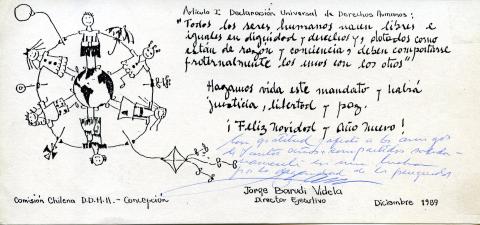 Artículo I: Declaración Universal de Derechos Humanos:
"Todos los seres humanos nacen libres e
iguales en dignidad y derechos y, dotados como
están de razón y conciencia, deben comportarse
fraternalmente los unos con los otros"
Hagamos vida este mandato y habrá
justicia, libertad y paz.
¡Feliz Navidad y Año Nuevo!
Con gratitud y afecto a los amigos
de tantos años compartidos
en una lucha
por la dignidad de los perseguidos
Jorge Barudi Videla
Director Ejecutivo
Comisión Chilena D.D.H.H. - Concepción
Diciembre 1989